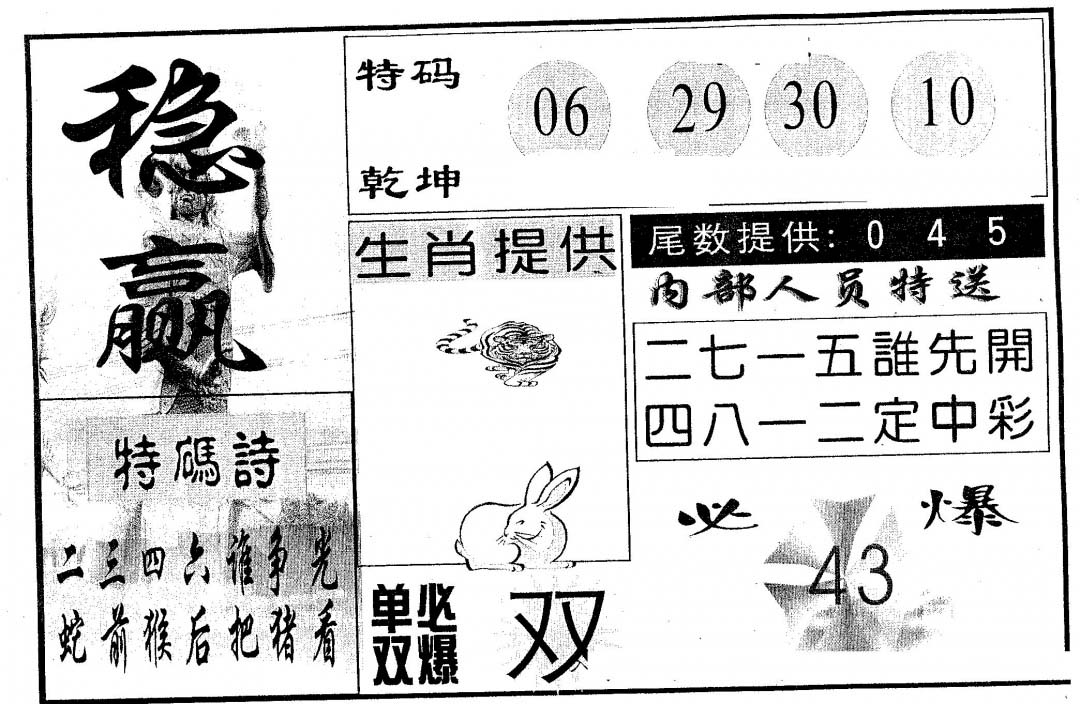 稳
赢
特码
乾坤
06 29 30 10
生肖提供
尾数提供: 0 4 5
内部人员特送
二七一五誰先開
四八一二定中彩
特碼詩
二三四六谁争光
蛇前猴后把猪看
必爆
43
单双
必爆
双